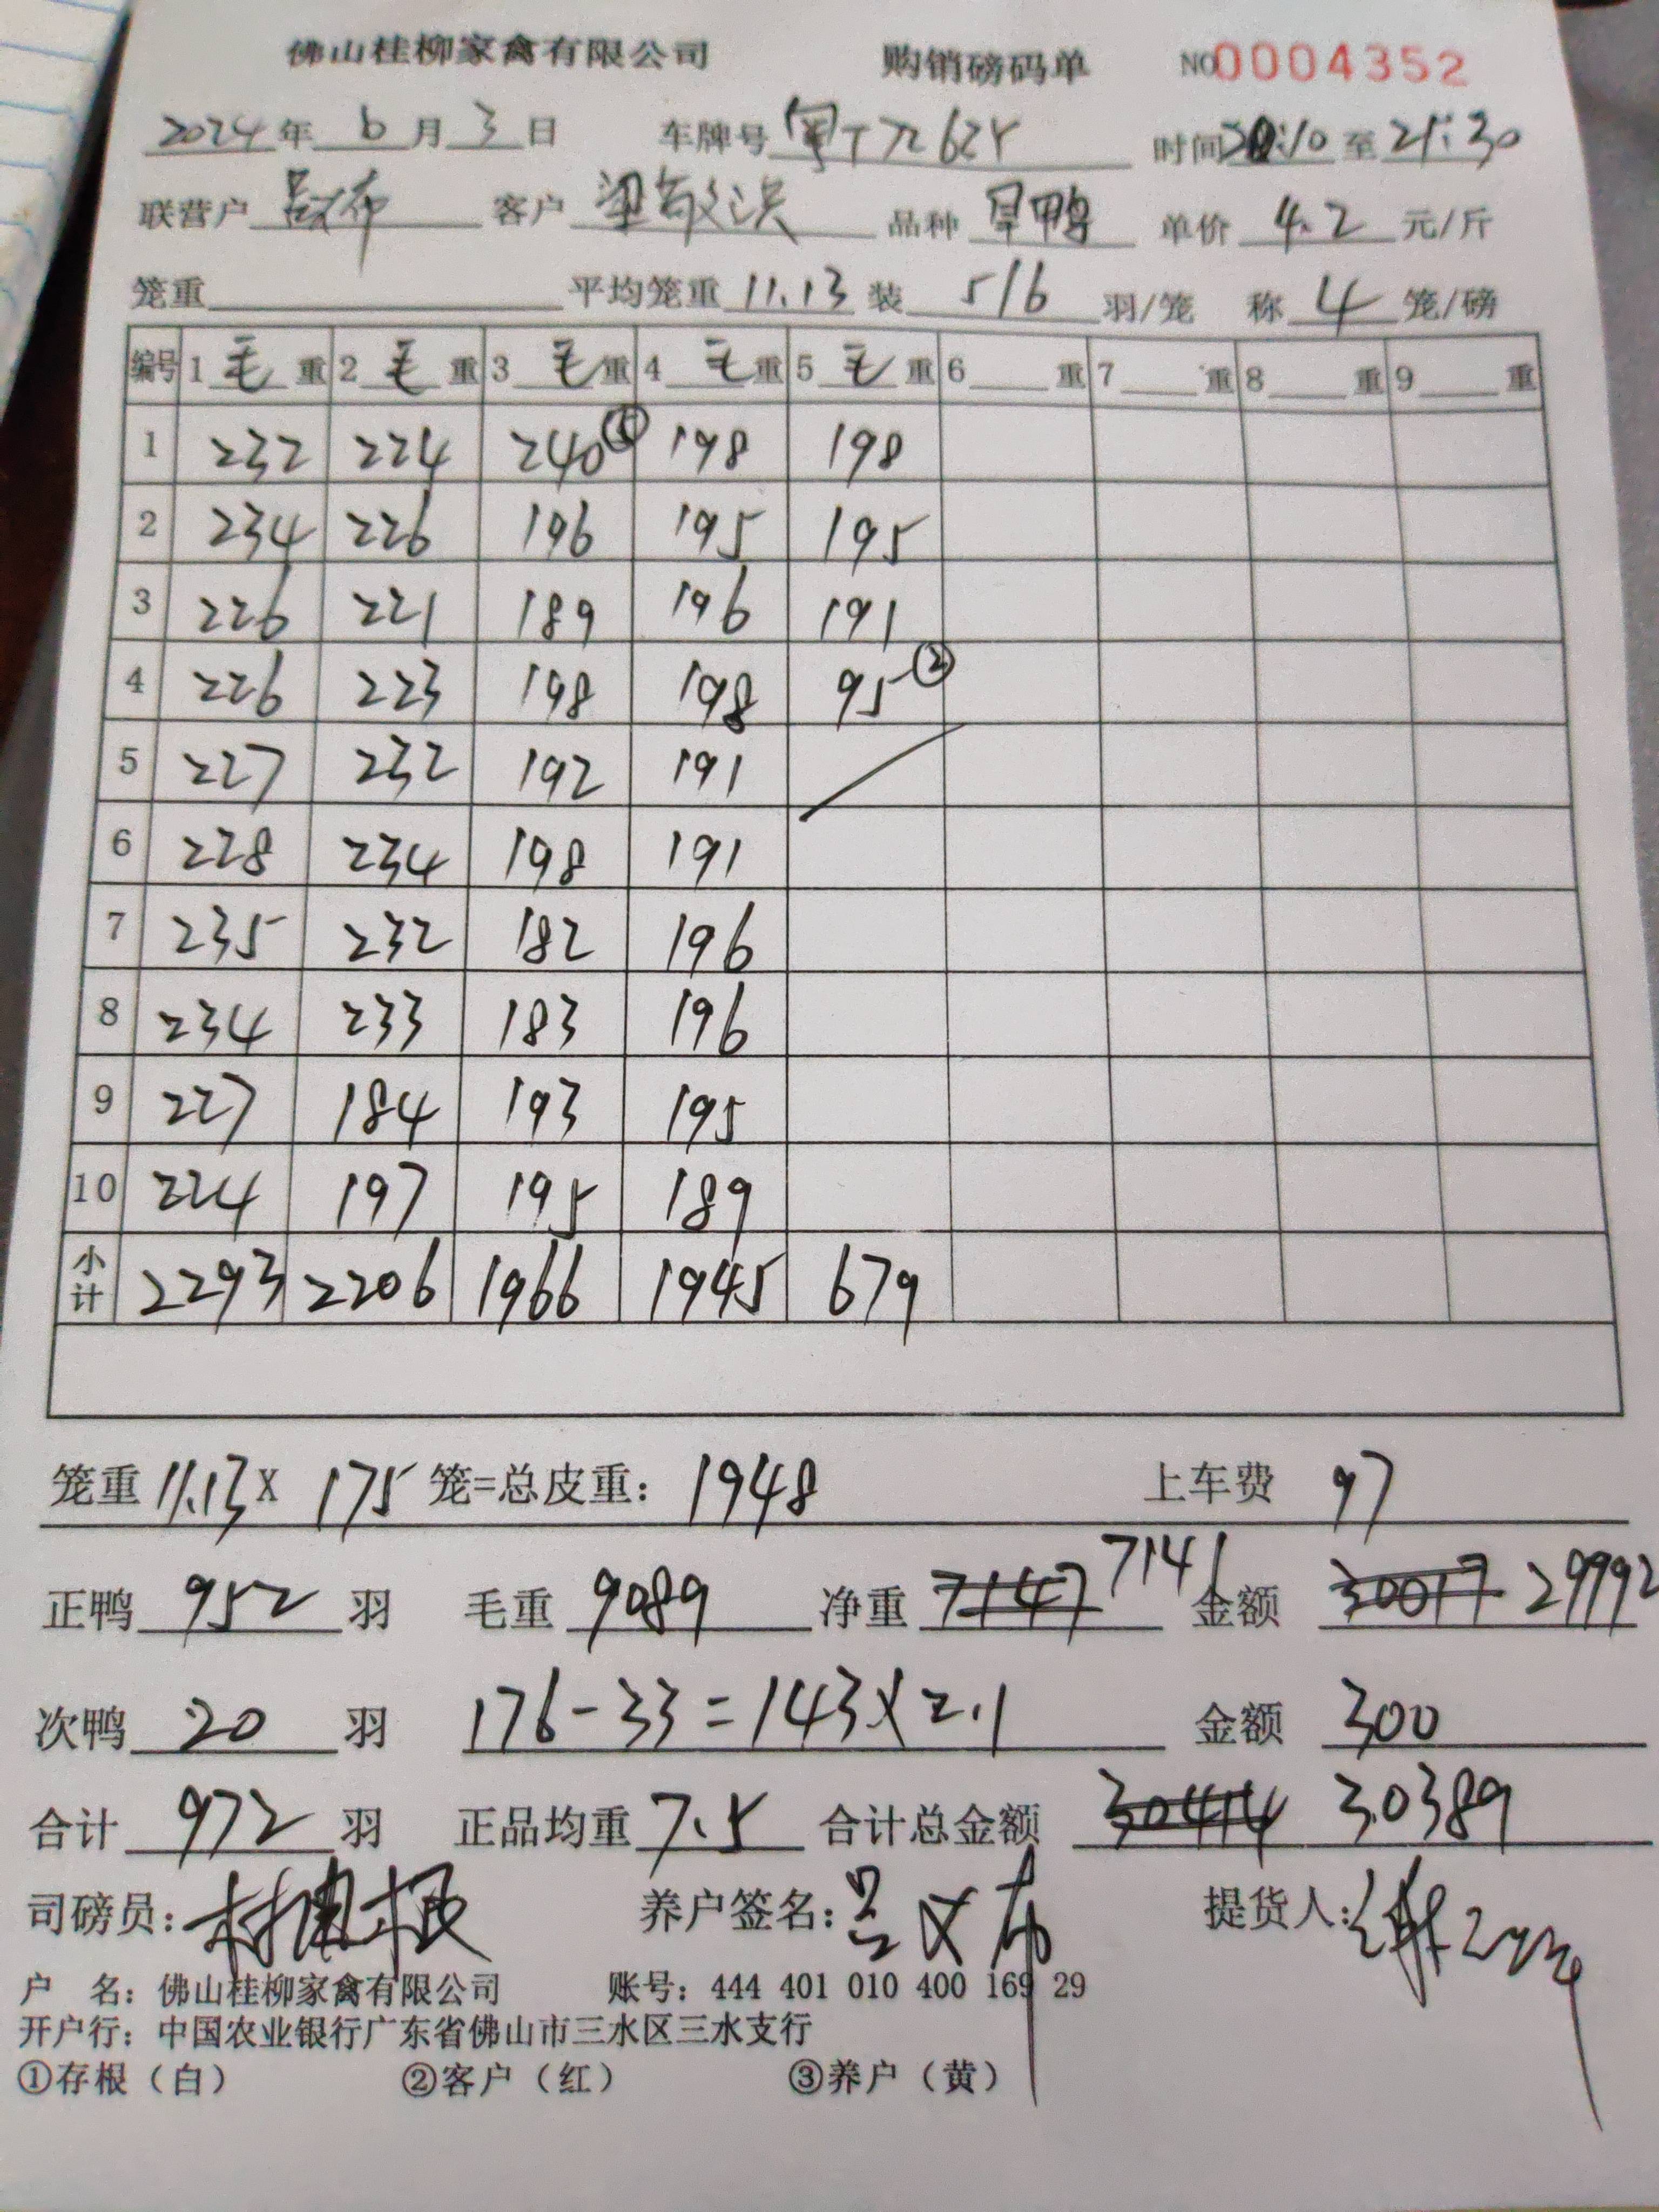 佛山桂柳家禽有限公司 购销磅码单 NO 0004352
2024年 6月 3日 车牌号 时间 20:10 至 21:30
联营户 吕布 客户 梁敬洪 品种 旱鸭 单价 4.2 元/斤
笼重 平均笼重 11.13 装 5/6 羽/笼 称 4 笼/磅
编号 1 毛 重 2 毛 重 3 毛 重 4 毛 重 5 毛 重 6 重 7 重 8 重 9 重
1 232 224 240⑤ 198 198
2 234 226 196 195 195
3 226 221 189 196 191
4 226 223 198 198 95②
5 227 232 192 191
6 228 234 198 191
7 235 232 182 196
8 234 233 183 196
9 227 184 193 195
10 224 197 195 189
小计 2293 2206 1966 1945 679
笼重 11.13 X 175 笼=总皮重: 1948 上车费 97
正鸭 952 羽 毛重 9089 净重 7147 7141 金额 30017 29992
次鸭 20 羽 176-33=143X2.1 金额 300
合计 972 羽 正品均重 7.5 合计总金额 30414 30389
司磅员: 养户签名: 提货人:
户 名: 佛山桂柳家禽有限公司 账号: 444 401 010 400 169 29
开户行: 中国农业银行广东省佛山市三水区三水支行
①存根（白） ②客户（红） ③养户（黄）